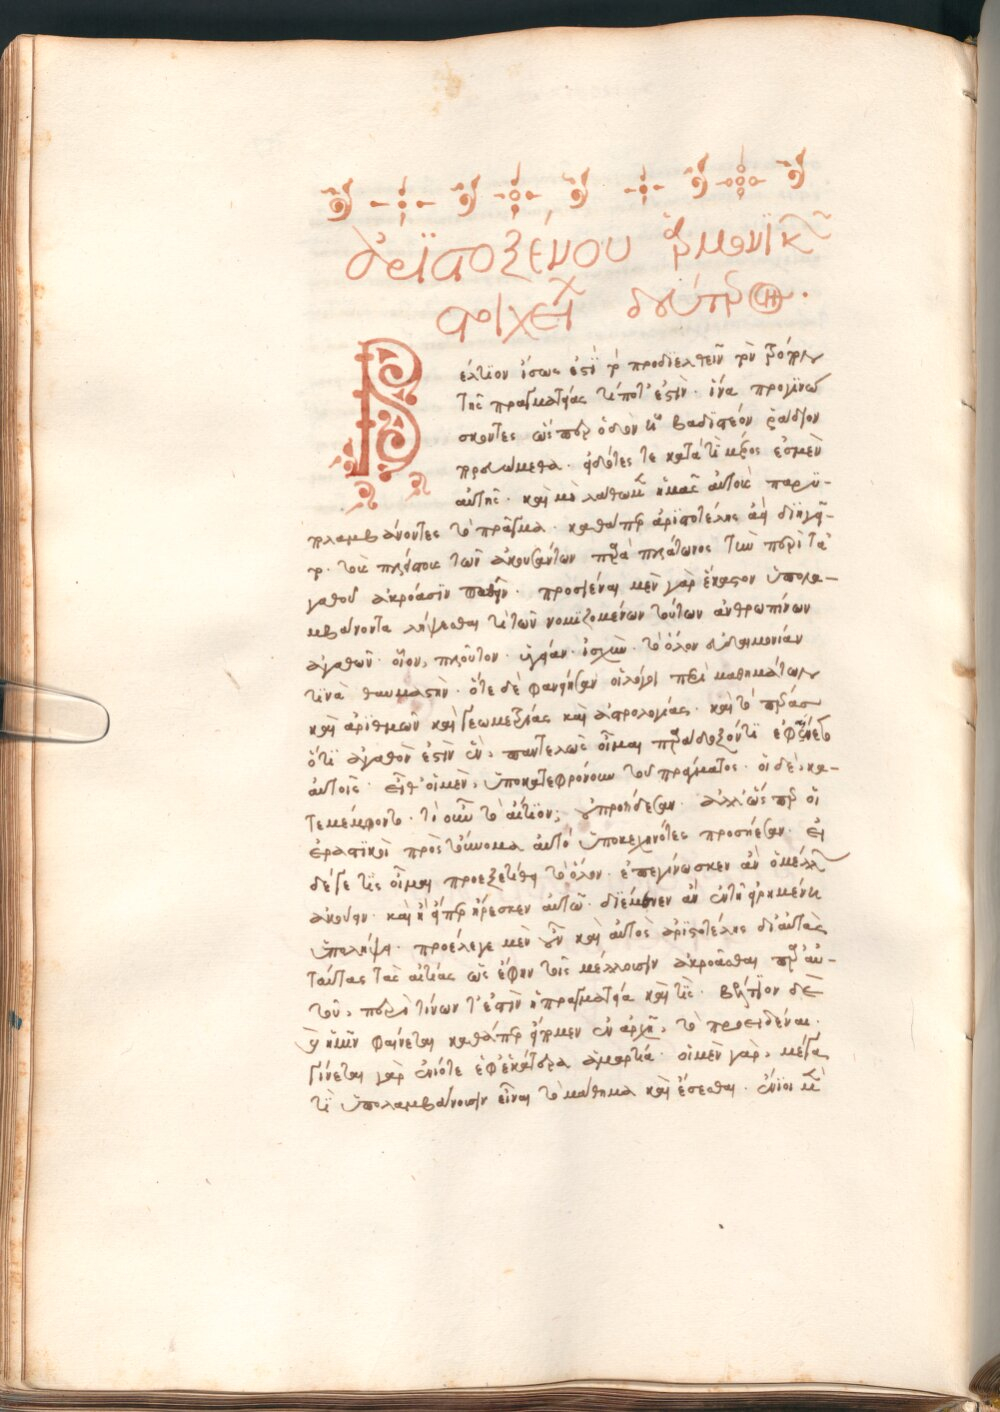 ἀριστοξένου ἁρμονικῶν
στοιχείων δεύτερον
Βέλτιον ἴσως ἐστὶ τὸ προδιελθεῖν τὸν τρόπον
τῆς πραγματείας τί ποτ' ἐστίν· ἵνα προγινώ
σκοντες ὥσπερ ὁδὸν ᾗ βαδιστέον ῥᾴδιον
πορευώμεθα· εἰδότες τε κατὰ τί μέρος ἐσμὲν
αὐτῆς· καὶ μὴ λάθωμεν ἡμᾶς αὐτοὺς παρυ-
πολαμβάνοντες τὸ πρᾶγμα· καθάπερ ἀριστοτέλης ἀεὶ διηγεῖ-
το· τοὺς πλείστους τῶν ἀκουσάντων παρὰ πλάτωνος τὴν περὶ τα
γαθοῦ ἀκρόασιν παθεῖν· προσιέναι μὲν γὰρ ἕκαστον ὑπολα-
μβάνοντα λήψεσθαι τι τῶν νομιζομένων τούτων ἀνθρωπίνων
ἀγαθῶν· οἷον, πλοῦτον· ὑγείαν· ἰσχὺν· τὸ ὅλον εὐδαιμονίαν
τινὰ θαυμαστὴν· ὅτε δὲ φανείησαν οἱ λόγοι περὶ μαθημάτων
καὶ ἀριθμῶν καὶ γεωμετρίας καὶ ἀστρολογίας· καὶ τὸ πέρας
ὅτι ἀγαθὸν ἐστὶν ἓν, παντελῶς οἶμαι παράδοξόν τι ἐφαίνετο
αὐτοῖς· εἶθ' οἱ μὲν, ὑποκατεφρόνουν τοῦ πράγματος· οἱ δὲ, κα-
τεμέμφοντο· τί οὖν τὸ αἴτιον; οὐ προῄδεσαν· ἀλλ' ὥσπερ οἱ
ἐριστικοὶ πρὸς τοὔνομα αὐτὸ ὑποκεχηνότες προσῄεσαν· εἰ
δέ γε τις οἶμαι προεξετίθει τὸ ὅλον· ἐπεγίνωσκεν ἂν ὁ μέλλων
ἀκούειν· καὶ ἢ εἴπερ ἤρεσκεν αὐτῷ· διέμενεν ἂν ἐν τῇ εἰρημένῃ
ὑπολήψει· προέλεγε μὲν οὖν καὶ αὐτὸς ἀριστοτέλης δι' αὐτὰς
ταύτας τὰς αἰτίας ὡς ἔφην τοῖς μέλλουσιν ἀκροᾶσθαι παρ' αὐ-
τοῦ, περὶ τίνων τ' ἐστὶν ἡ πραγματεία καὶ τίς· βέλτιον δὲ
καὶ ἡμῖν φαίνεται καθάπερ εἴπομεν ἐν ἀρχῇ, τὸ προειδέναι·
γίνεται γὰρ ἐνίοτε ἐφ' ἑκάτερα ἁμαρτία· οἱ μὲν γὰρ, μέγα
τι ὑπολαμβάνουσιν εἶναι τὸ μάθημα καὶ ἔσεσθαι· ἔνιοι μὲν